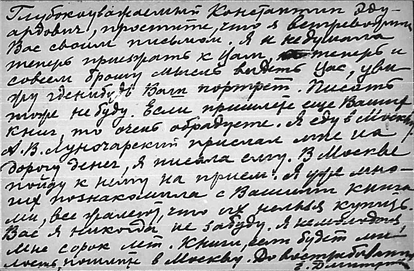 Глубокоуважаемый Константин Эду-
ардович, простите, что я встревожила
Вас своим письмом. Я и не думала
теперь приезжать к Вам, теперь и
совсем брошу мысль видеть Вас, уви-
жу где-нибудь Ваш портрет. Писать
тоже не буду. Если пришлете еще Ваших
книг, то очень обрадуете. Я еду в Москву,
А. В. Луначарский прислал мне на
дорогу денег, я писала ему. В Москве
пойду к нему на прием. Я уже мно-
гих познакомила с Вашими книга-
ми, все жалеют, что их нельзя купить.
Вас я никогда не забуду. Я
мне сорок лет. Книги, если будет ми-
лость, пошлите в Москву. До востребования